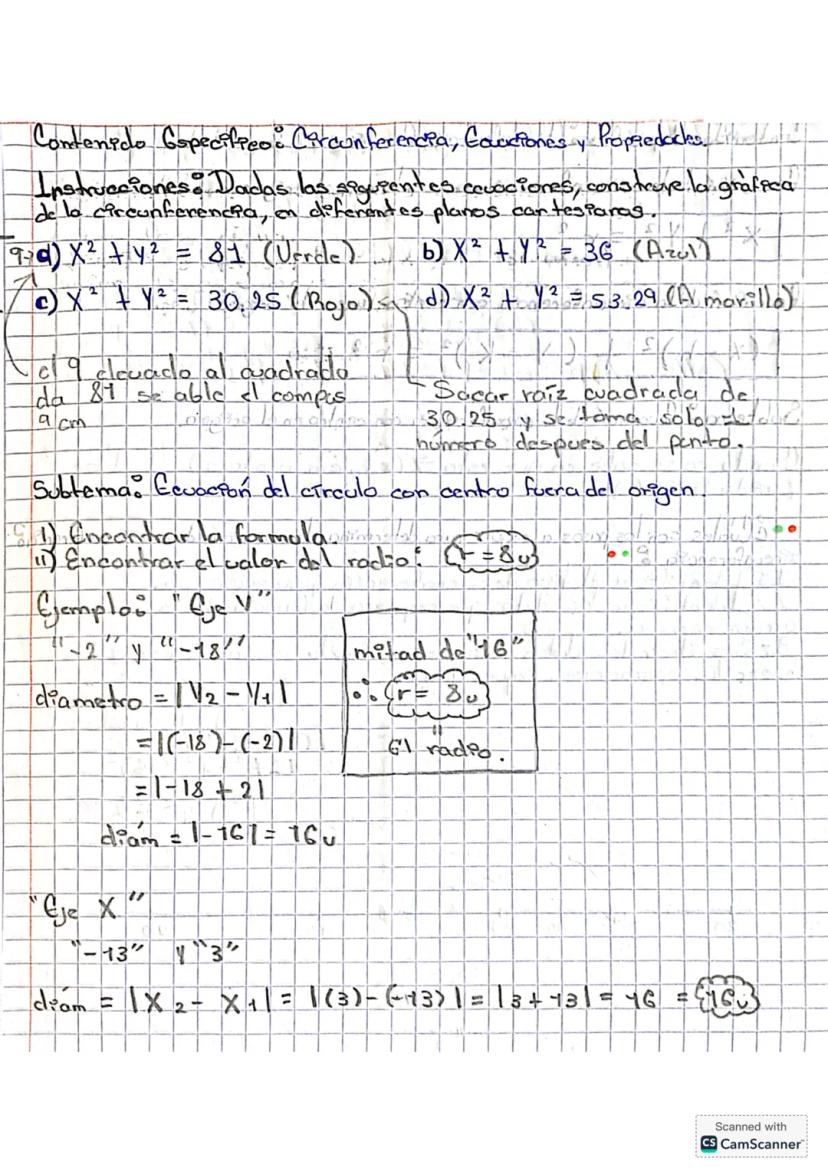 Contenido Específico: Circunferencia, Ecuaciones y Propiedades.
Instrucciones: Dadas las siguientes ecuaciones, construye la gráfica
de la circunferencia, en diferentes planos cartesianos.
9→a) X² + Y² = 81 (Verde) b) X² + Y² = 36 (Azul)
c) X² + Y² = 30.25 (Rojo) d) X² + Y² = 53.29 (Amarillo)
el 9 elevado al cuadrado
da 81 se able el compas
9 cm
Sacar raíz cuadrada de
30.25 y se toma solo
número despues del punto.
Subtema: Ecuación del círculo con centro fuera del origen.
I) Encontrar la formula.
II) Encontrar el valor del radio: r = 8u
Ejemplo: "Eje Y"
"-2" y "-18"
diametro = |Y₂ - Y₁|
= |(-18) - (-2)|
= |-18 + 2|
diám = |-16| = 16u
mitad de "16"
∴ r = 8u
=
El radio.
"Eje X"
"-13" y "3"
diám = |X₂ - X₁| = |(3) - (-13)| = |3 + 13| = 16 = 16u
Scanned with
CS CamScanner